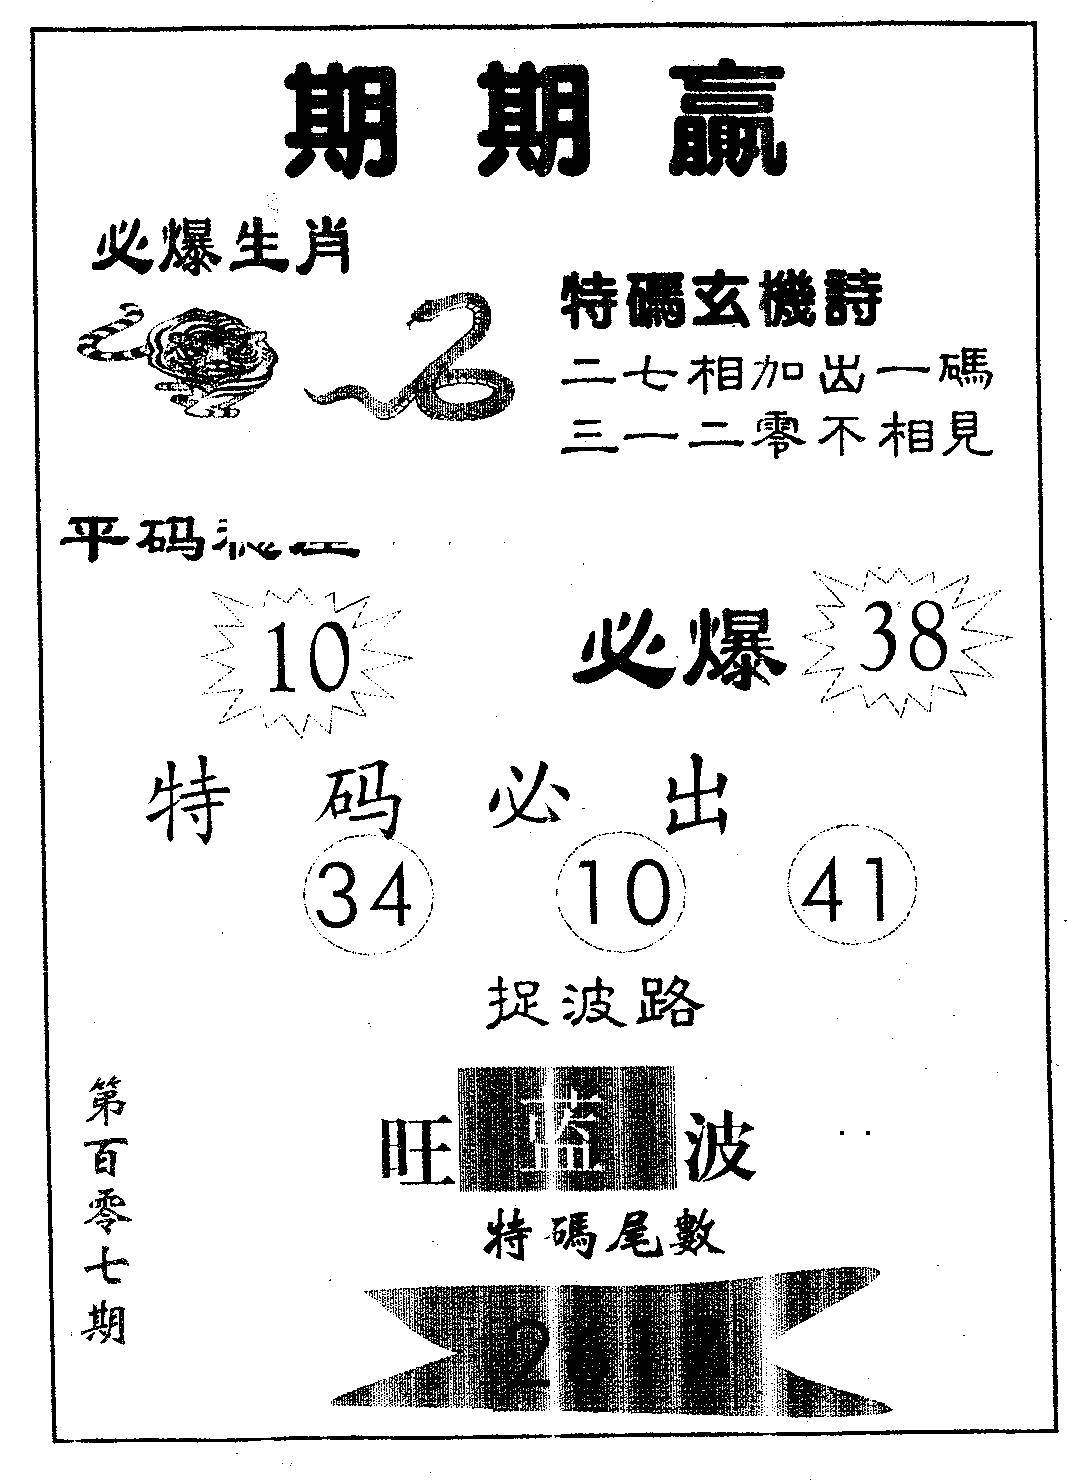 期期贏
必爆生肖
特碼玄機詩
二七相加出一碼
三一二零不相見
平码
10
必爆 38
特码必出
34 10 41
捉波路
旺藍波
特碼尾數
第百零七期